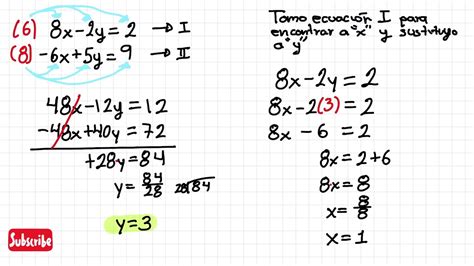 (6) 8x-2y=2 → I
(8) -6x+5y=9 → II
48x-12y=12
-48x+40y=72
+28y=84
y=84/28 28√84
y=3
Tomo ecuación I para
encontrar a "x" y sustituyo
a "y"
8x-2y=2
8x-2(3)=2
8x-6=2
8x=2+6
8x=8
x=8/8
x=1
Subscribe